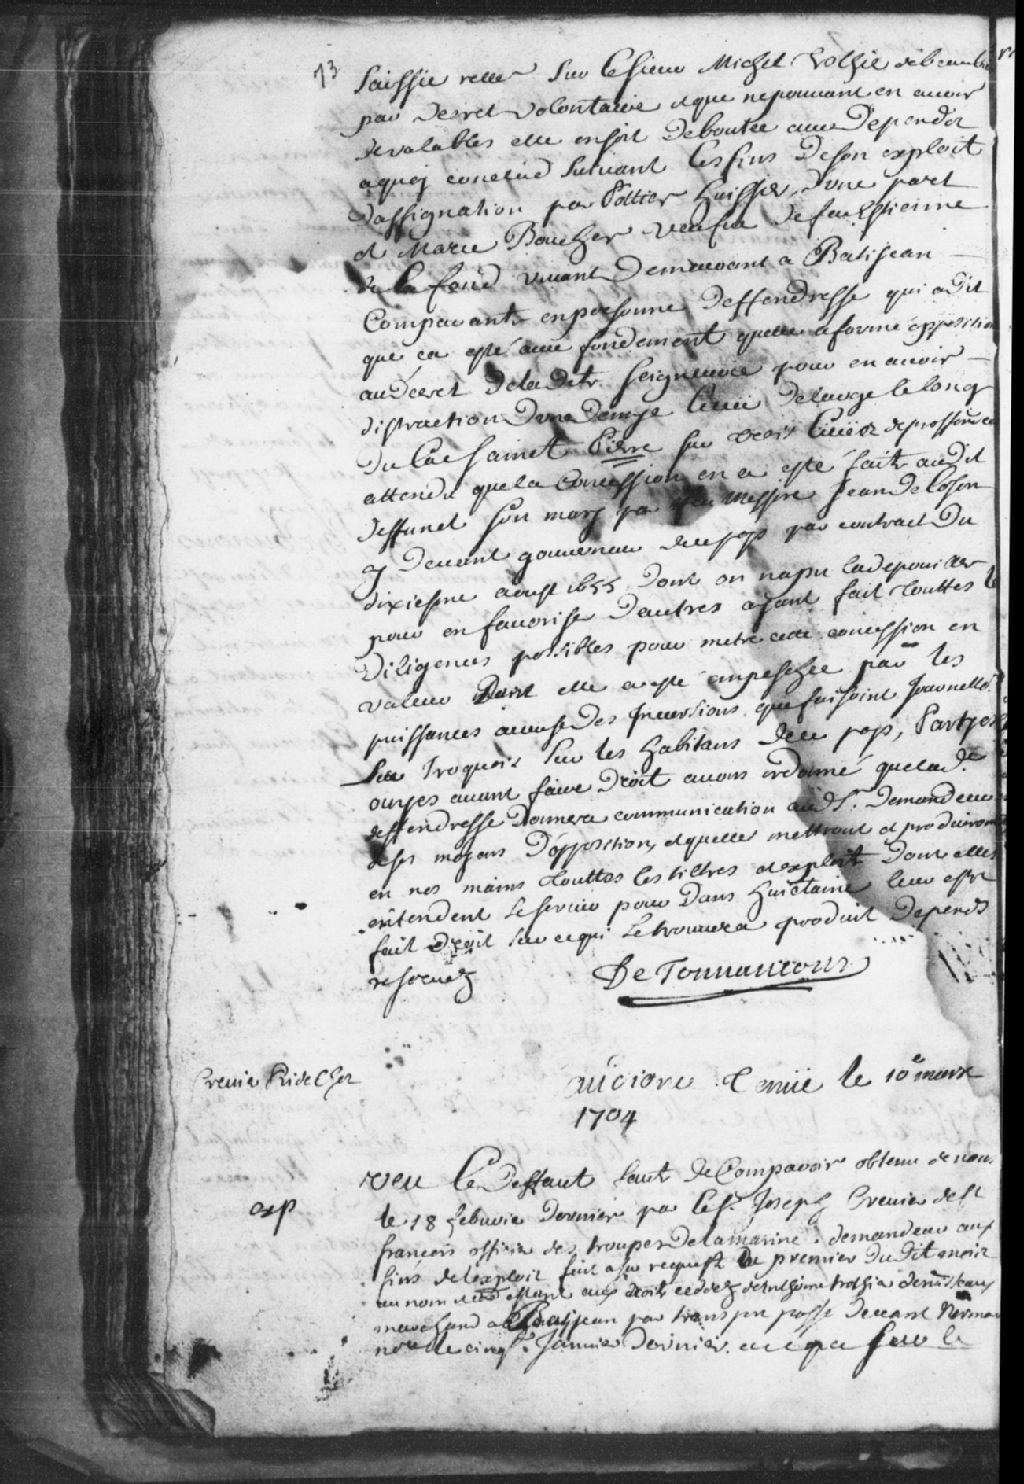 73
Saissie reelle sur le sieur Michel Trotier de beaubien
par decret volontaire et que ne pouvant en avoir
de valables elle en soit deboutée avec depends
a quoy conclud suivant les fins de son exploit
d'assignation par Pottier huissier, d'une part
et Marie Boucher veufve de feu Estienne
de Lafond vivant demeurant a Batisean
Comparante en personne deffendresse qui a dit
que ca esté avec fondement quelle a formé opposition
au decret de la ditte seigneurie pour en avoir
distraction d'une demye lieue de large le long
du Lac Sainct Pierre sur trois lieues de proffondeur
attendu que la concession en a esté faite audit
deffunct son mary par feu Messire Jean de Loson
cy devant gouverneur de ce pays par contract du
dixiesme aoust 1655 dont on na pu la depouiller
pour en favoriser d'autres ayant fait touttes les
diligences possibles pour metre cette concession en
valeur dont elle a esté empeschée par les
puissances a cause des Incursions que faisoient Journellemt
les Iroquois sur les habitans de ce pays, Partyes
ouyes avant faire droit avons ordonné que lad.
deffendresse donnera communication aud. Sr. demandeur
de ses moyens d'opposition, et quelle mettront et produiront
en nos mains touttes les tiltres et exploit dont elles
entendent se servir pour dans huictaine leur estre
fait droit sur ce qui se trouvera produit depends
reservez
De Tonnancour
Crevier Pr de Cher
audiance Tenüe le 10e mars
1704
exp
veu Le Deffaut faute de Comparoir obtenu de nous
le 18 febvrier dernier par le sr. Joseph Crevier de St
francois officier des troupes de la marine demandeur aux
fins de l'exploit fait a sa requeste le premier dudit mois
au nom et comme estant aux droits cedez de Anthoine trottier demisteaux
marchand a Batisean par transport passé devant Normand
nore le cinq. Janvier dernier. a ce que sur le